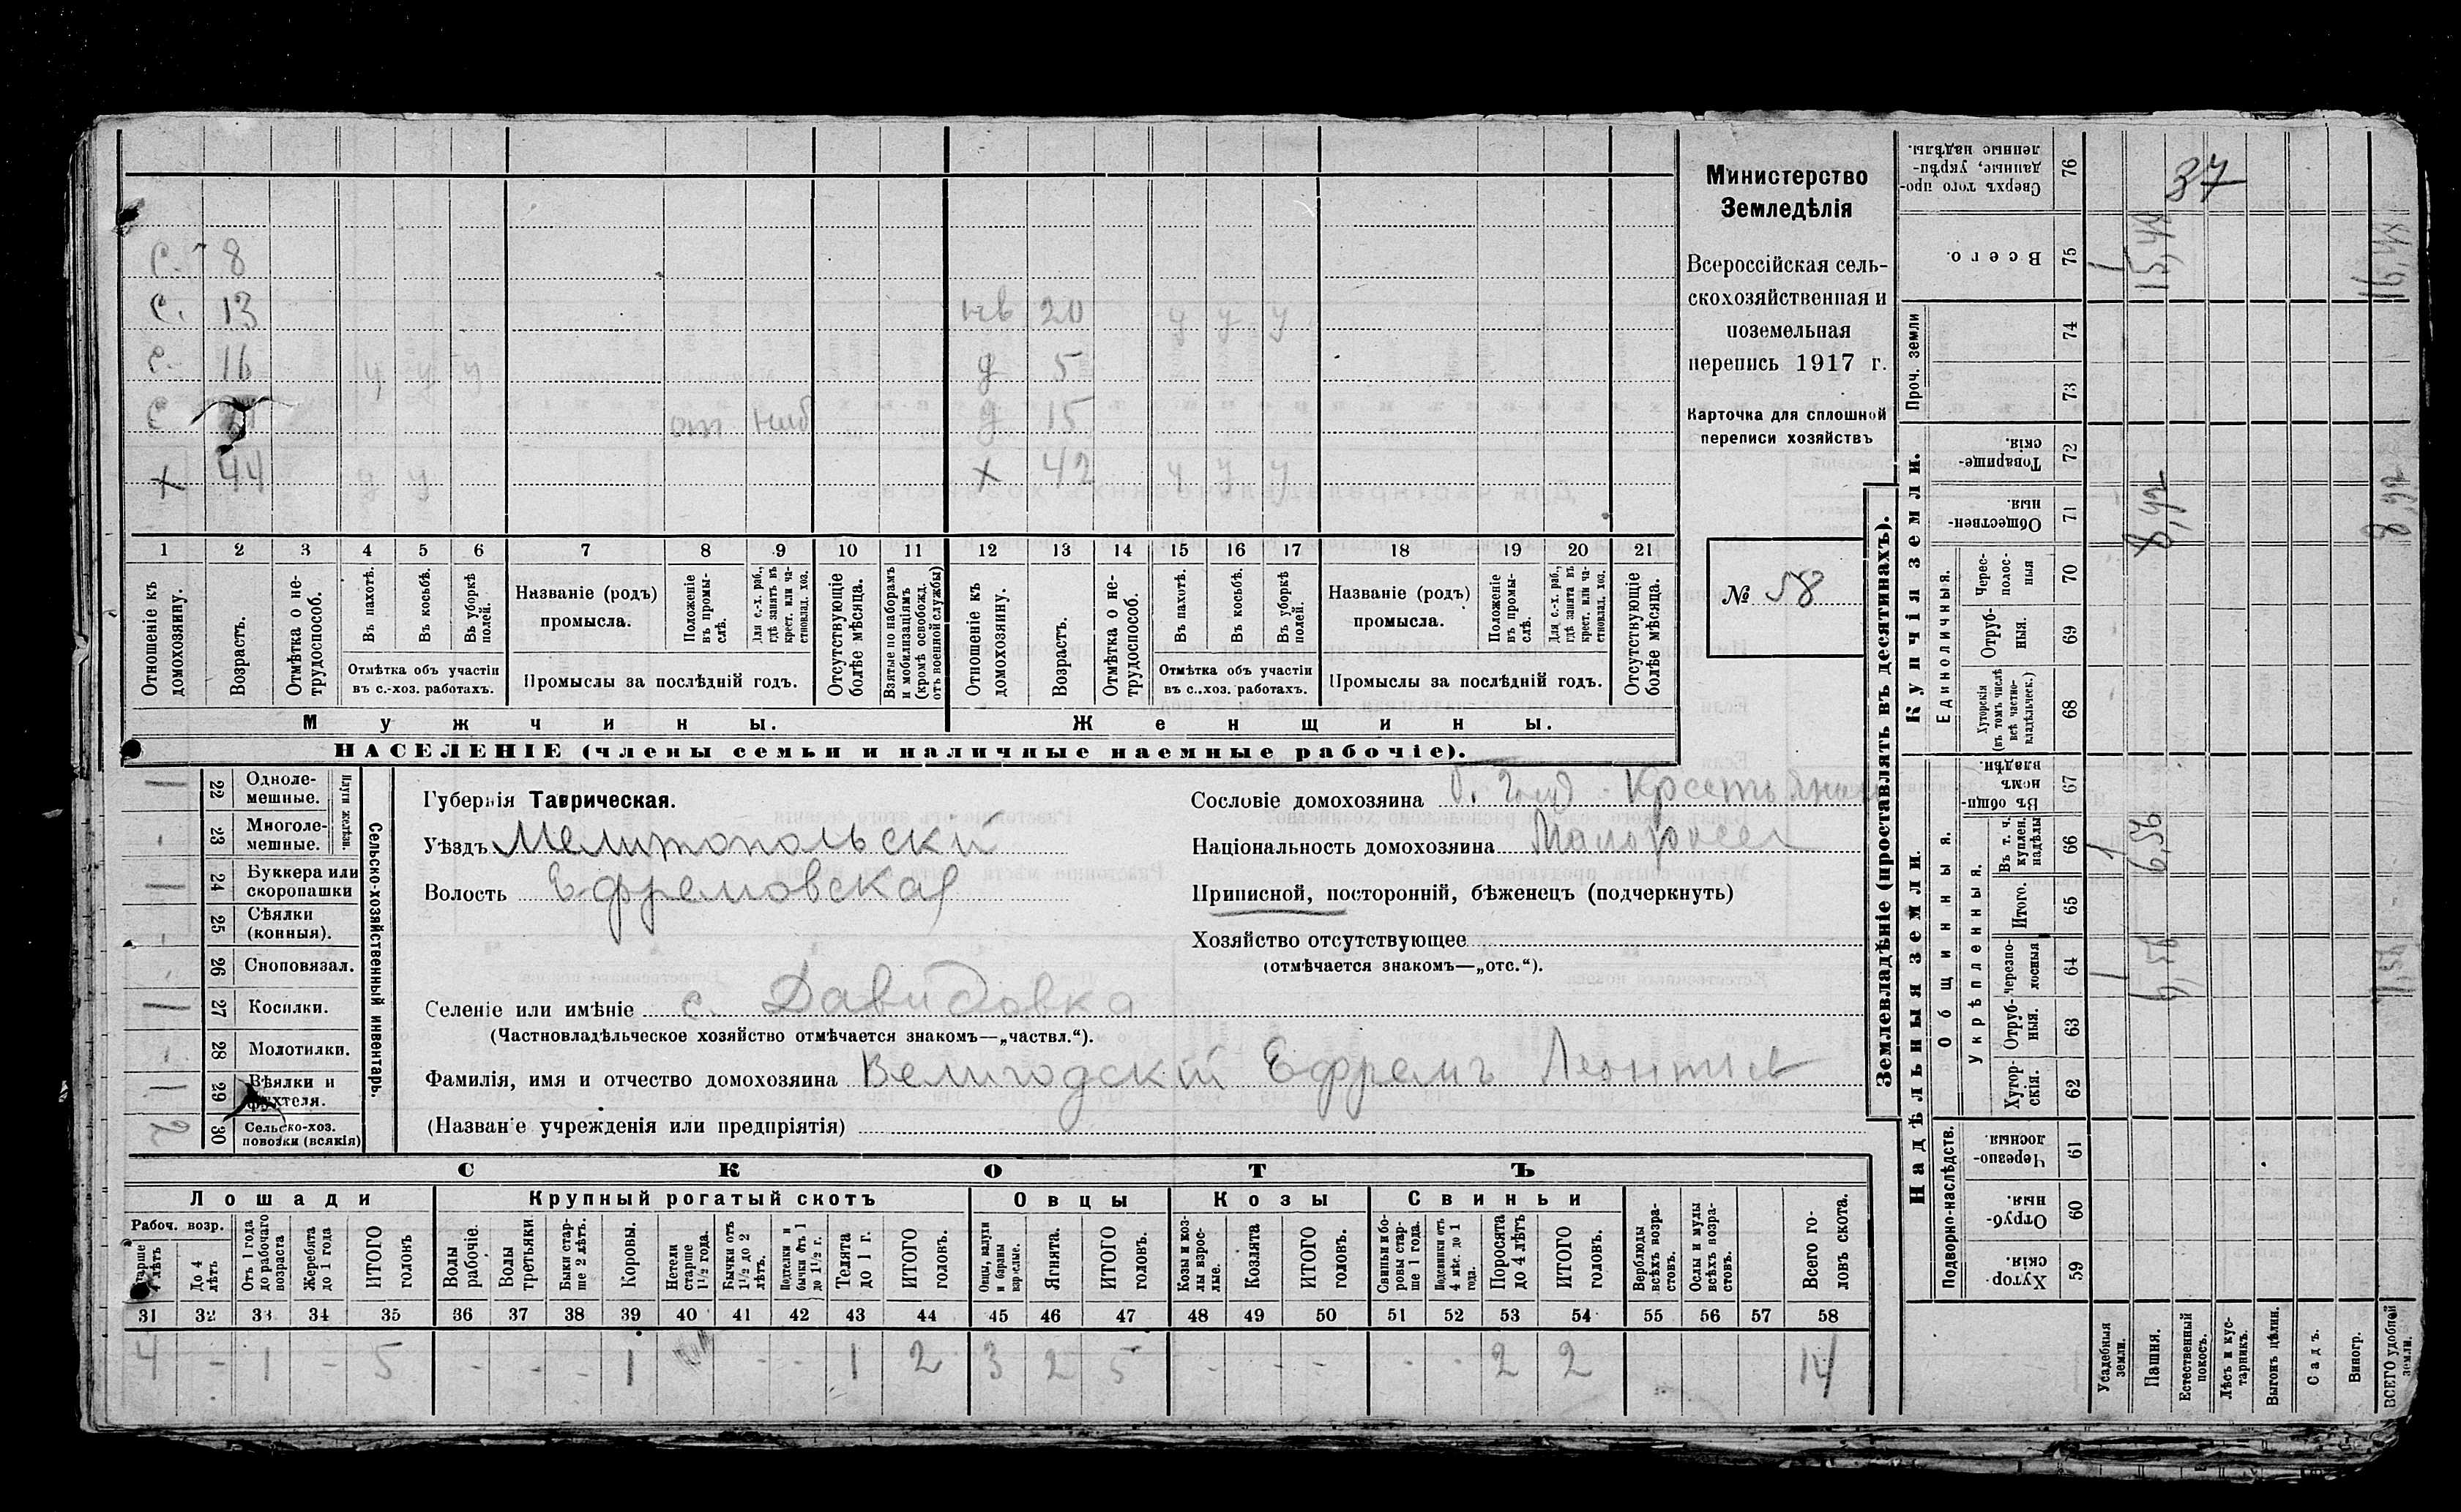 Министерство
Земледѣлія
Всероссійская сель-
скохозяйственная и
поземельная
перепись 1917 г.
Карточка для сплошной
переписи хозяйствъ
№ 58
37
с. 8
с. 13
нв 20 у у у
с. 16 у у у
д 5
с
от
д 15
х 44 у у
х 42 у у у
1 2 3 4 5 6 7 8 9 10 11 12 13 14 15 16 17 18 19 20 21
Отношеніе къ домохозяину.
Возрастъ.
Отмѣтка о не-трудоспособ.
Въ пахотѣ.
Въ косьбѣ.
Въ уборкѣ полей.
Отмѣтка объ участіи въ с.-хоз. работахъ.
Названіе (родъ) промысла.
Положеніе въ промы-слѣ.
Для с.-х. раб., гдѣ занятъ въ крест. или ча-стновлад. хоз.
Промыслы за послѣдній годъ.
Отсутствующіе болѣе мѣсяца.
Взятые по наборамъ и мобилизаціямъ (кромѣ освобожд. отъ военной службы)
Отношеніе къ домохозяину.
Возрастъ.
Отмѣтка о не-трудоспособ.
Въ пахотѣ.
Въ косьбѣ.
Въ уборкѣ полей.
Отмѣтка объ участіи въ с.-хоз. работахъ.
Названіе (родъ) промысла.
Положеніе въ промы-слѣ.
Для с.-х. раб., гдѣ занята въ крест. или ча-стновлад. хоз.
Промыслы за послѣдній годъ.
Отсутствующіе болѣе мѣсяца.
Мужчины.
Женщины.
НАСЕЛЕНІЕ (члены семьи и наличные наемные рабочіе).
Сельско-хозяйственный инвентарь.
Плуги желѣзн.
1 22 Одноле-мешные.
- 23 Многоле-мешные.
1 24 Буккера или скоропашки
- 25 Сѣялки (конныя).
- 26 Сноповязал.
1 27 Косилки.
- 28 Молотилки.
1 29 Вѣялки и фухтеля.
2 30 Сельско-хоз. повозки (всякія)
Губернія Таврическая.
Уѣздъ Мелитопольскій
Волость Ефремовская
Сословіе домохозяина Крестьянин
Національность домохозяина Малоросс
Приписной, посторонній, бѣженецъ (подчеркнуть)
Хозяйство отсутствующее
(отмѣчается знакомъ—„отс.“).
Селеніе или имѣніе с. Давидовка
(Частновладѣльческое хозяйство отмѣчается знакомъ—„частвл.“).
Фамилія, имя и отчество домохозяина Велигодскій Ефремъ Леонтьев
(Названіе учрежденія или предпріятія)
СКОТЪ
Лошади Крупный рогатый скотъ Овцы Козы Свиньи
Рабоч. возр.
Старше 4 лѣтъ
До 4 лѣтъ
Отъ 1 года до рабочаго возраста
Жеребята до 1 года
ИТОГО головъ
Волы рабочіе.
Волы третьяки.
Быки стар-ше 2 лѣтъ.
Коровы.
Нетели старше 1½ года.
Бычки отъ 1½ до 2 лѣтъ.
Подтелки и бычки отъ 1 до 1½ г.
Телята до 1 г.
ИТОГО головъ.
Овцы, валухи и бараны взрослые.
Ягнята.
ИТОГО головъ.
Козы и коз-лы взрос-лые.
Козлята
ИТОГО головъ.
Свиньи и бо-ровы стар-ше 1 года.
Подсвинки отъ 4 мѣс. до 1 года.
Поросята до 4 лѣтъ
ИТОГО головъ.
Верблюды всѣхъ возра-стовъ.
Ослы и мулы всѣхъ возра-стовъ.
Всего го-ловъ скота.
31 32 33 34 35 36 37 38 39 40 41 42 43 44 45 46 47 48 49 50 51 52 53 54 55 56 57 58
4 - 1 - 5 - - - 1 - - 1 2 3 2 5 - - - - - 2 2 14
Землевладѣніе (проставлять въ десятинахъ).
Надѣльныя земли.
Купчія земли.
Проч. земли
Подворно-наслѣдств.
Общинныя.
Укрѣпленныя.
Единоличныя.
Хутор-скія. 59
Отруб-ныя. 60
Черезпо-лосныя. 61
Хутор-скія. 62
Отруб-ныя. 63
Черезпо-лосныя 64
Итого. 65
Въ т. ч. куплен. надѣлы 66
Въ общи-номъ владѣн. 67
Хуторскія (въ томъ числѣ всѣ частно-владѣльческ.) 68
Отруб-ныя. 69
Черес-полос-ныя 70
Обществен-ныя. 71
Товарище-скія. 72
73
74
Всего. 75
Сверхъ того про-данные, укрѣп-ленные надѣлы. 76
Усадебныя земли.
Пашня.
Естественный покосъ.
Лѣсъ и кус-тарникъ.
Выгонъ цѣлин.
Садъ.
Виногр.
ВСЕГО удобной земли.
1 6,56 7,56
1 6,56
8,92 8,92
1 15,48 16,48